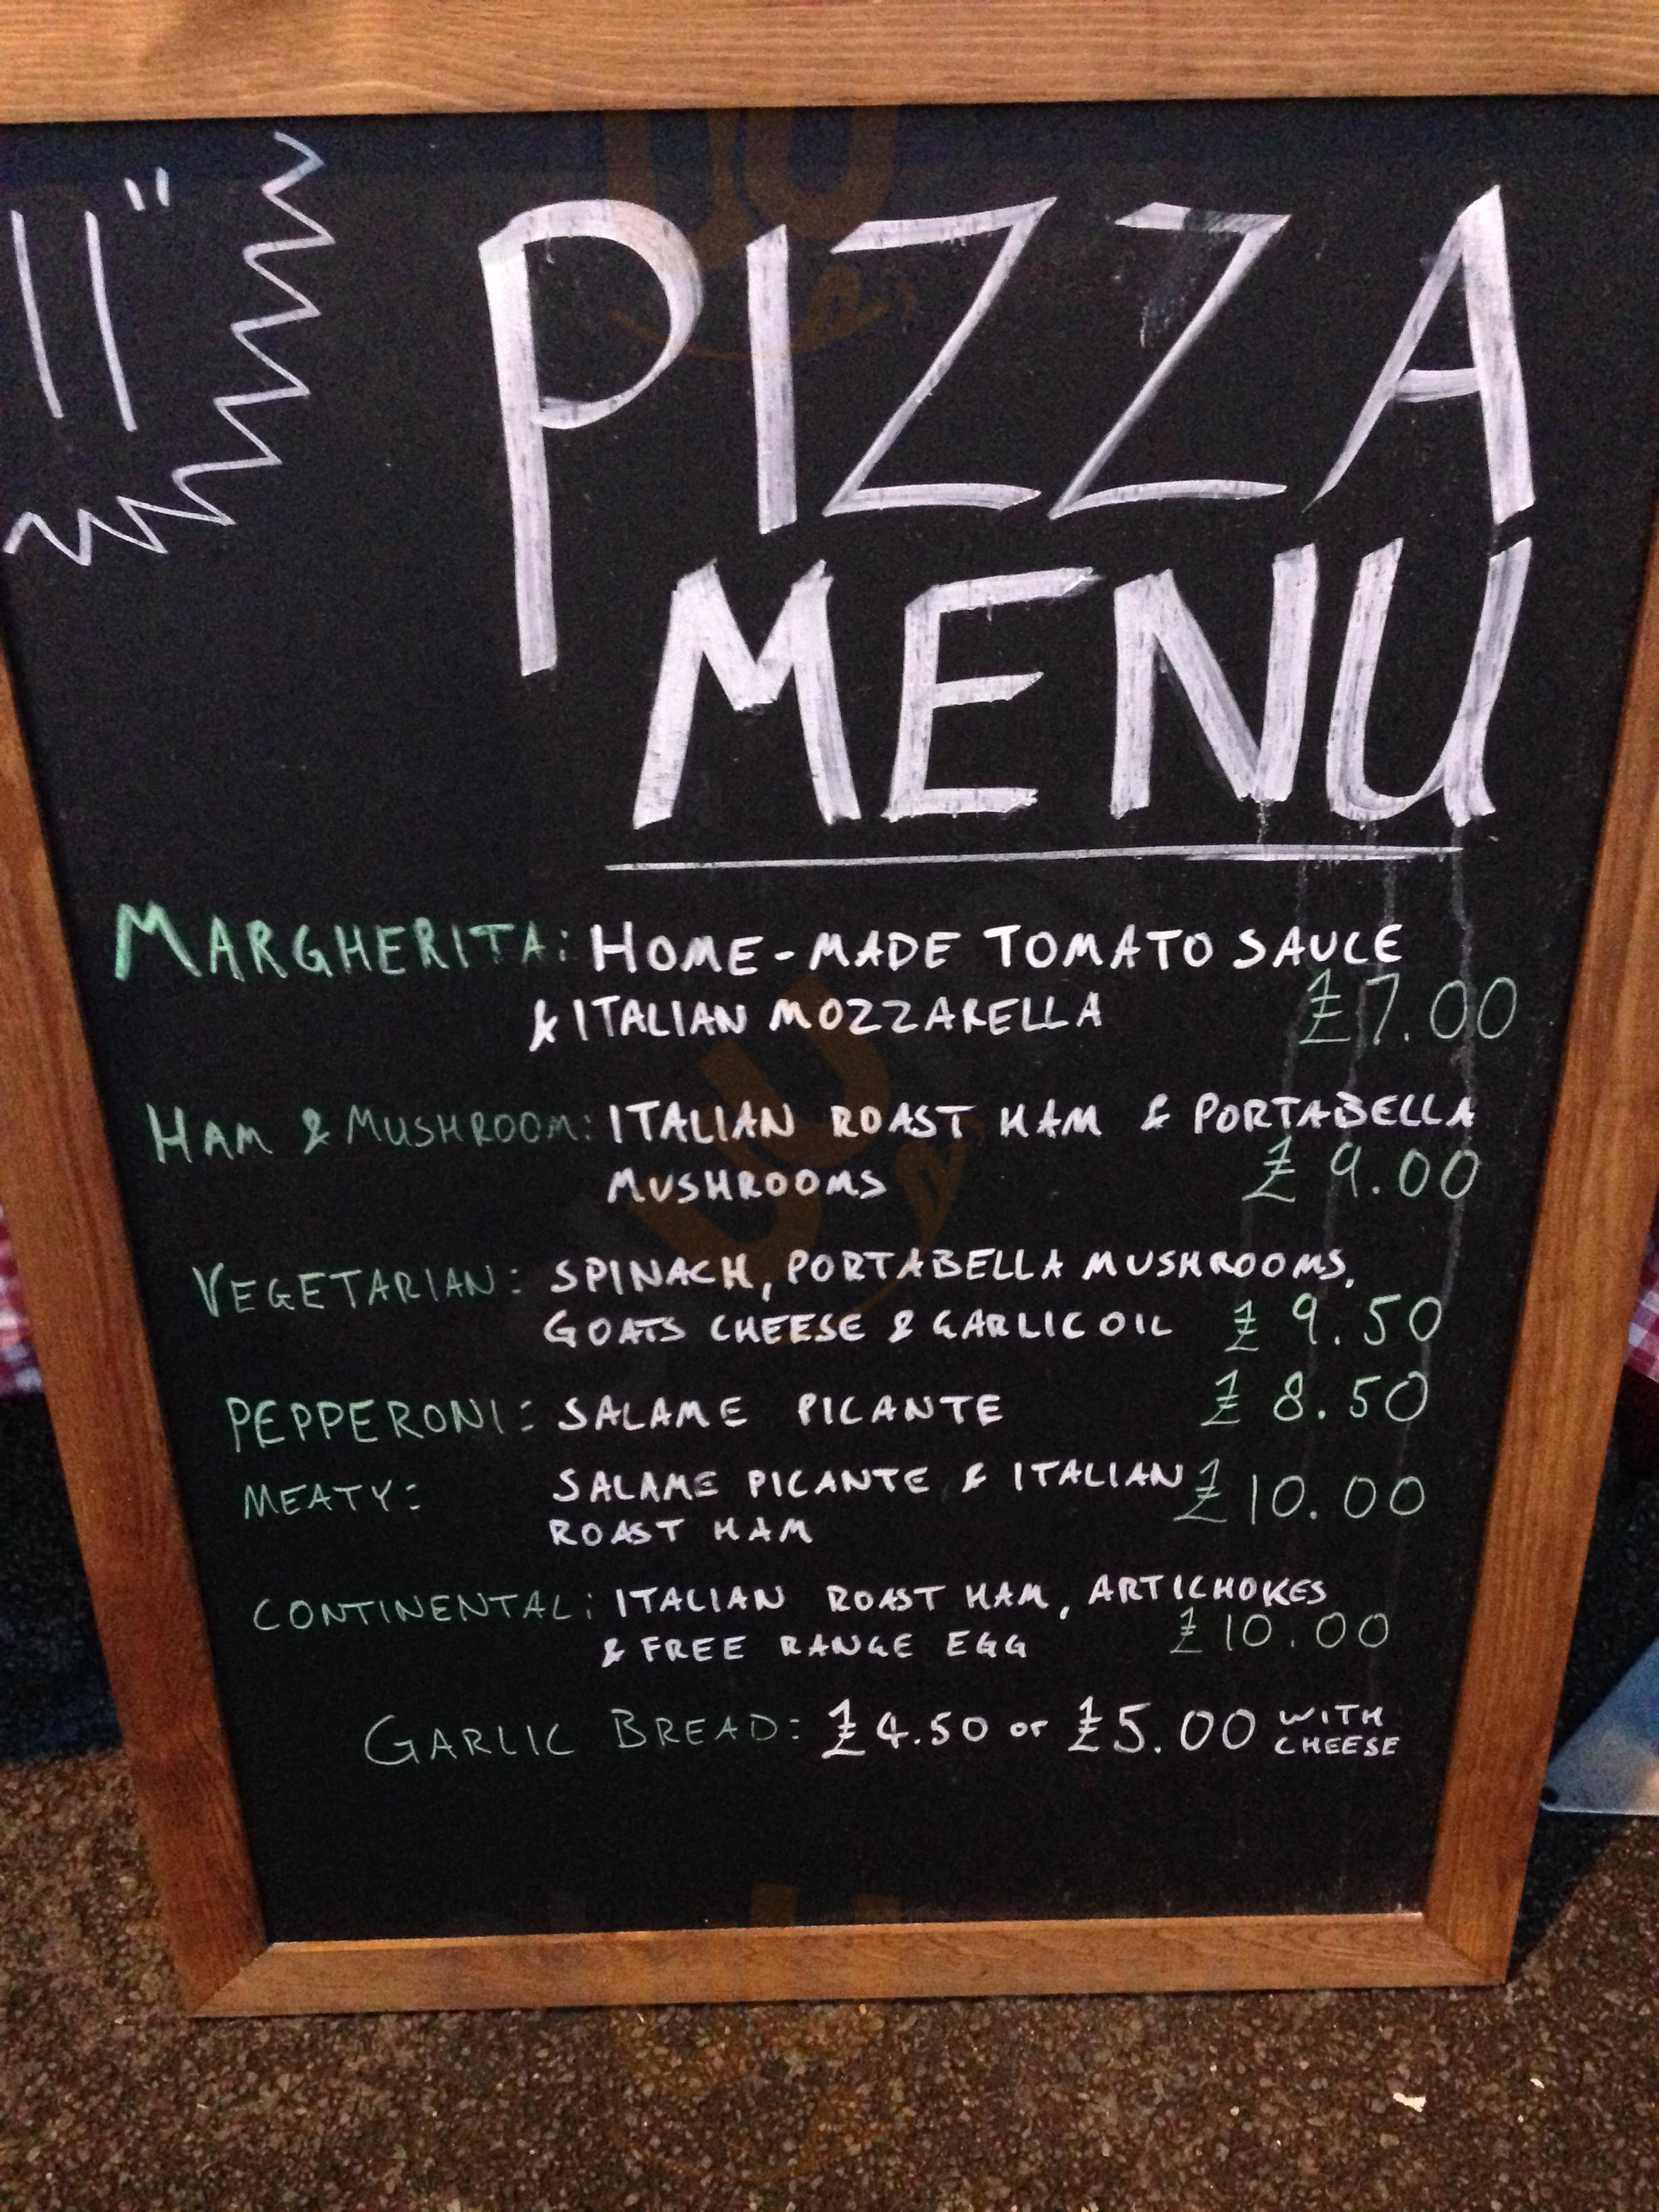 11"
PIZZA
MENU
MARGHERITA: HOME-MADE TOMATO SAUCE
& ITALIAN MOZZARELLA £7.00
HAM & MUSHROOM: ITALIAN ROAST HAM & PORTABELLA
MUSHROOMS £9.00
VEGETARIAN: SPINACH, PORTABELLA MUSHROOMS,
GOATS CHEESE & GARLIC OIL £9.50
PEPPERONI: SALAME PICANTE £8.50
MEATY: SALAME PICANTE & ITALIAN £10.00
ROAST HAM
CONTINENTAL: ITALIAN ROAST HAM, ARTICHOKES
& FREE RANGE EGG £10.00
GARLIC BREAD: £4.50 or £5.00 WITH
CHEESE